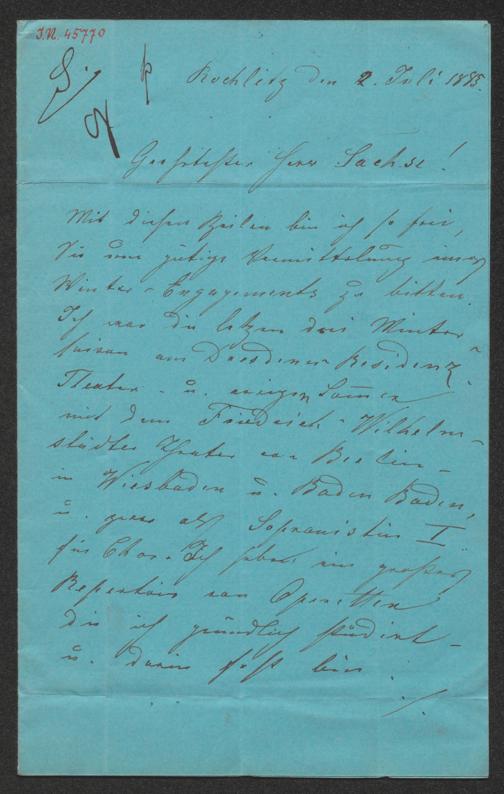 I.N. 45770
Rochlitz den 2. Juli 1885.
Geehrtester Herr Sachse!
Mit diesen Zeilen bin ich so frei,
Sie um gütige Vermittelung eines
Winter-Engagements zu bitten.
Ich war die letzten drei Winter
saison am Dresdener Residenz-
Theater - u. vorigen Sommer
mit dem Friedrich-Wilhelm-
städter Theater von Berlin -
in Wiesbaden u. Baden Baden,
u. zwar als Sopranistin I
für Chor. Ich habe ein großes
Repertoir von Operetten
die ich gründlich studirt -
u. darin fest bin.